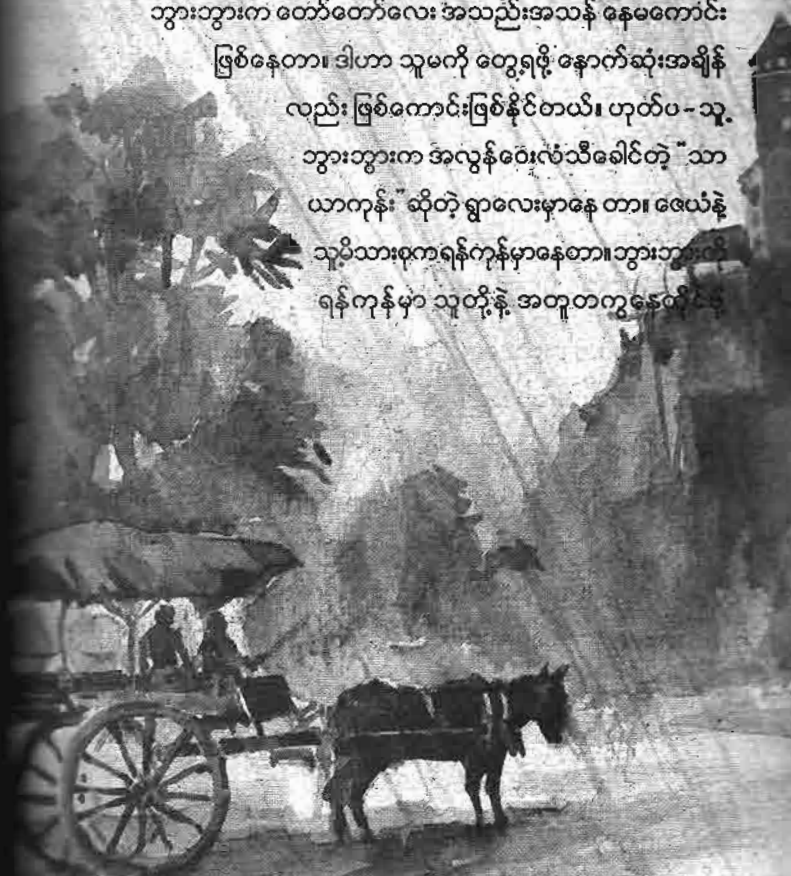 ဘွားဘွားက တော်တော်လေး အသည်းအသန် နေမကောင်း
ဖြစ်နေတာ။ ဒါဟာ သူမကို တွေ့ရဖို့ နောက်ဆုံးအချိန်
လည်း ဖြစ်ကောင်းဖြစ်နိုင်တယ်။ ဟုတ်ပ - သူ့
ဘွားဘွားက အလွန်ဝေးလံသီခေါင်တဲ့ "သာ
ယာကုန်း" ဆိုတဲ့ ရွာလေးမှာနေ တာ။ ဇေယံနဲ့
သူ့မိသားစုကရန်ကုန်မှာနေတာ။ဘွားဘွားကို
ရန်ကုန်မှာ သူတို့နဲ့ အတူတကွနေထိုင်ဖို့